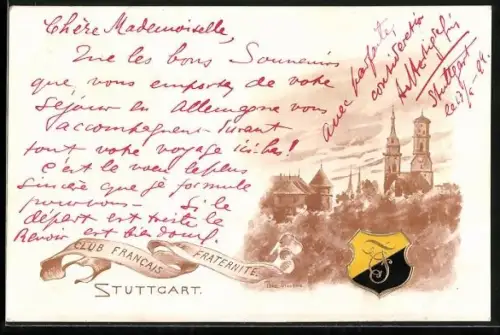 Chère Mademoiselle,
Que les bons Souvenirs
que vous emportez de votre
Séjour en Allemagne vous
accompagnent durant
tout votre voyage ici bas!
C'est le voeu le plus
sincère que je formule
pour vous – Si le
départ est triste le
Revoir est bien doux.
avec parfaite
considération
Stuttgart
CLUB FRANÇAIS FRATERNITÉ.
STUTTGART.